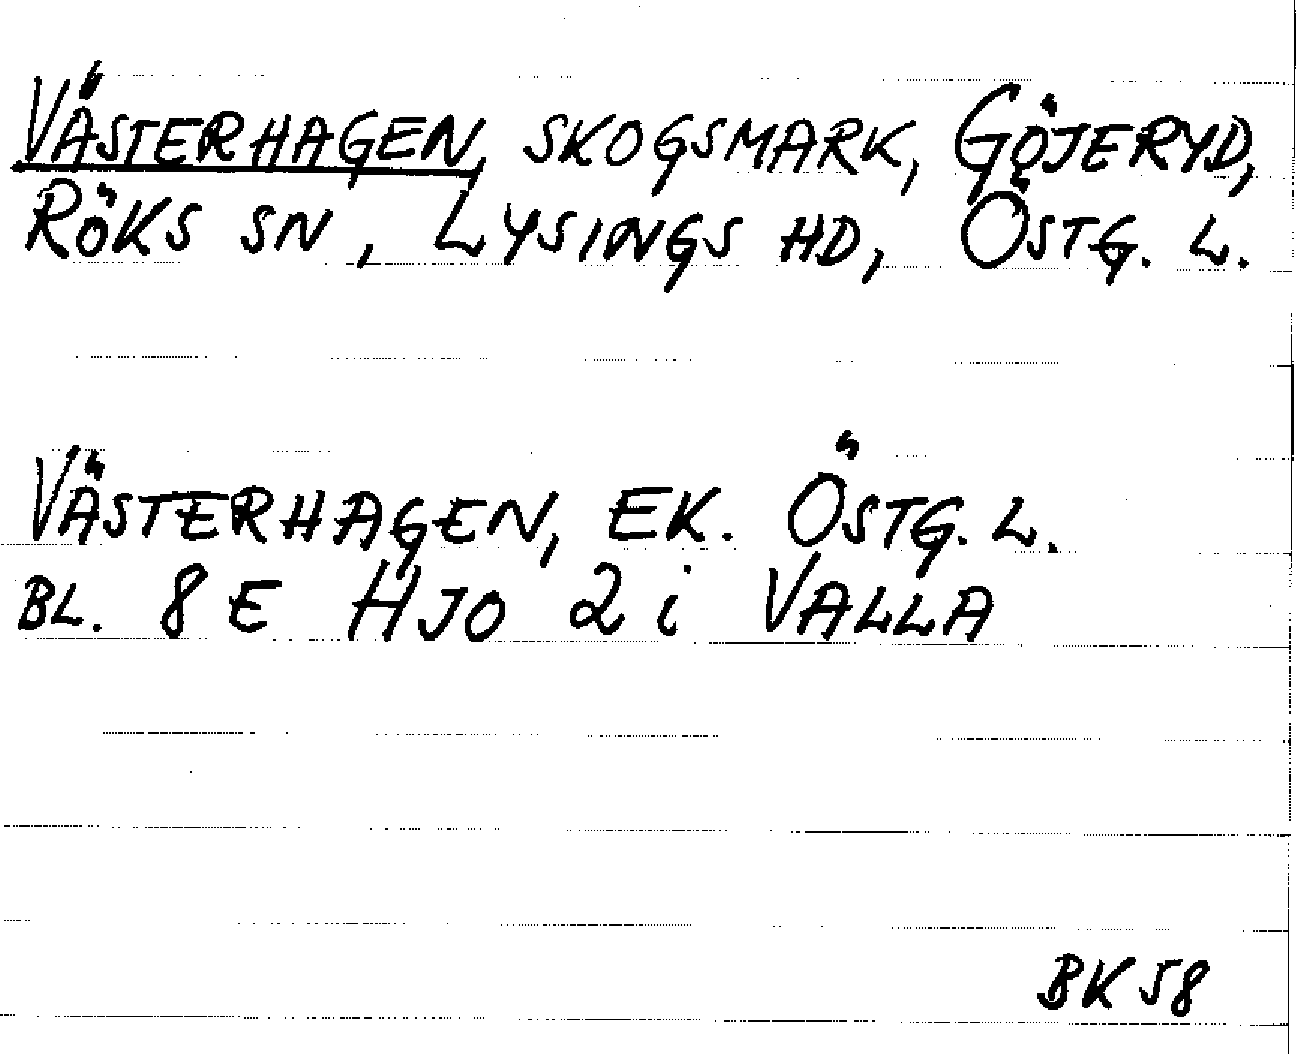 VÄSTERHAGEN, SKOGSMARK, GÖJERYD,
RÖKS SN, LYSINGS HD, ÖSTG. L.
VÄSTERHAGEN, EK. ÖSTG. L.
BL. 8 E HJO 2 i VALLA
BK 58